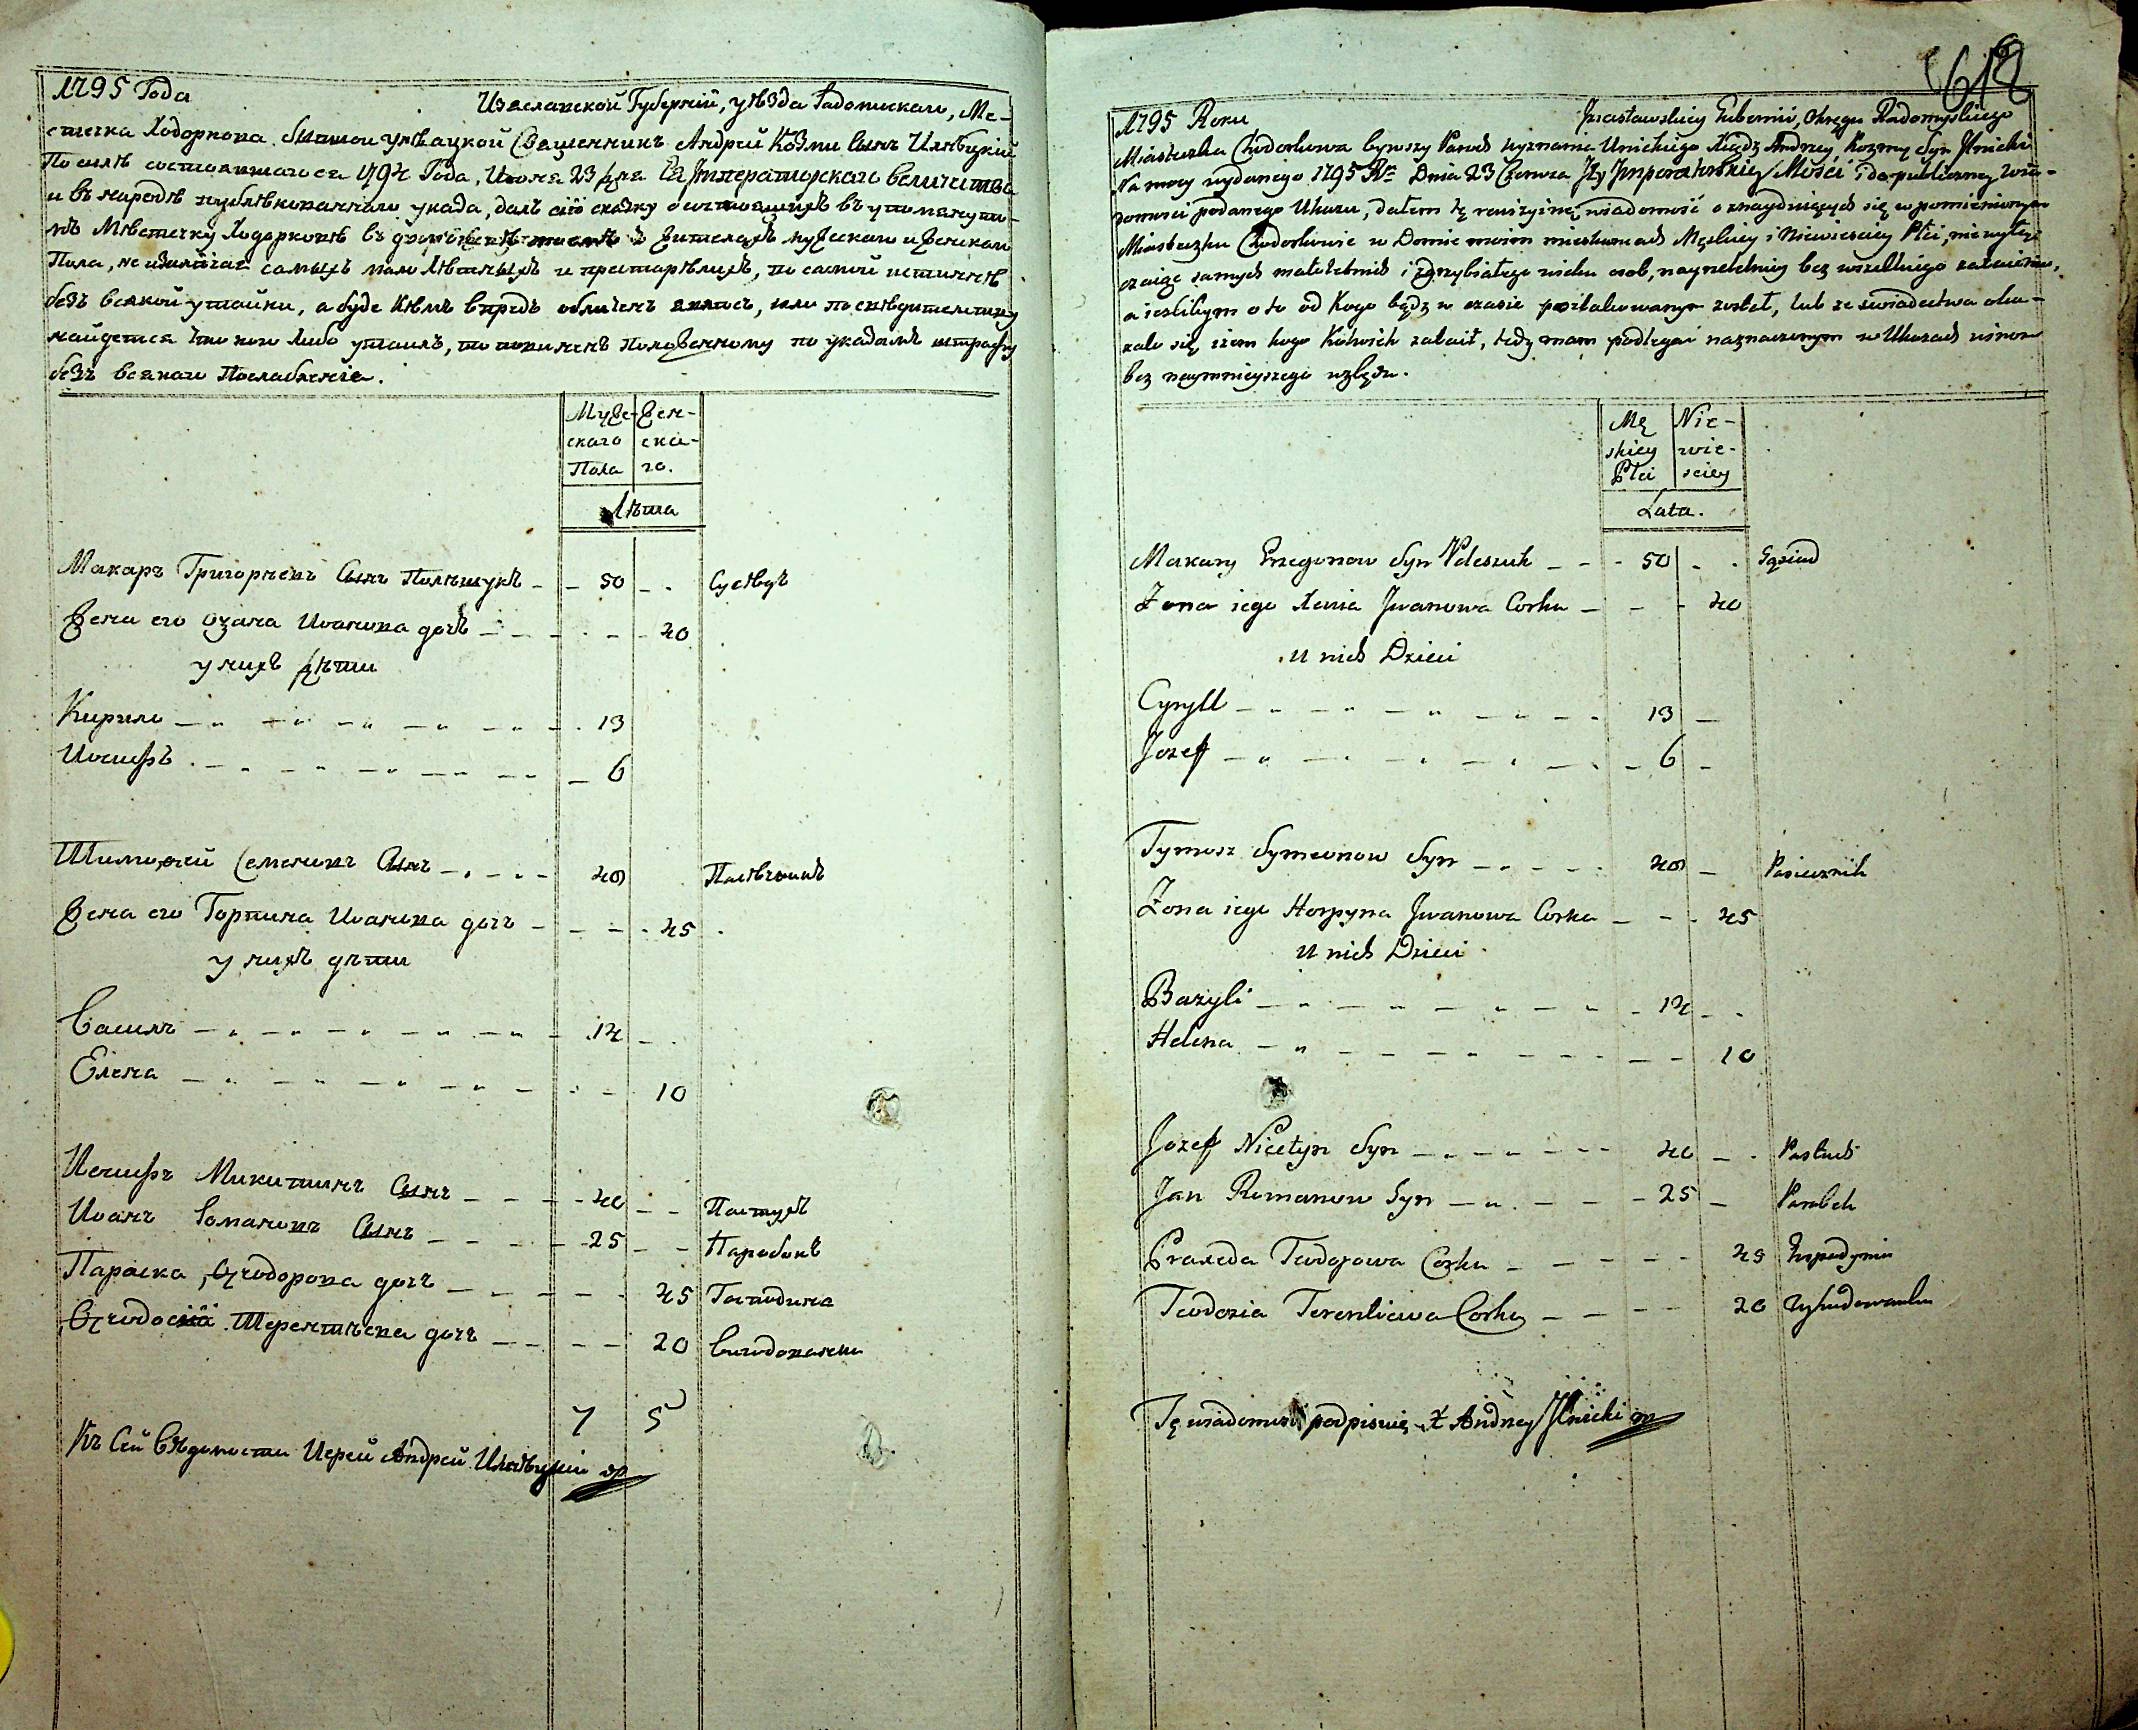 1795 Года
Изяславской Губерніи, уѣзда Радомискаго, Ме-
стечка Ходоркова бывшои уніяцкой Священникъ Андрей Козми Сынъ Илницкій
По силѣ состоявшагося 1794 Года, Июня 23 дня Ея Императорскаго величества
и въ народѣ публѣкованнаго указа, далъ сію сказку о состоящихъ въ упомянуто-
мъ Мѣстечку Ходорковѣ въ жителяхъ мужескаго и женскаго
Пола, не изключая самыхъ мало лѣтныхъ и престарѣлихъ, по самой истиннѣ
безъ всякой утайки, а буде кѣмъ впредь обличенъ явлюсь, или по свидѣтелству
найдется что кого либо утаилъ, то повиненъ положенному по указамъ штрафу
безъ всякаго Послабленія.
Муже- Жен-
скаго ска-
Пола го.
Лѣта
Макаръ Григориевъ Сынъ Полѣшукъ 50 Сусѣдъ
Жена его Иванова дочь 40
у нихъ дѣти
Кирило 13
Иосифъ 6
Тимофей Семеновъ Сынъ 40 Пасѣчникъ
Жена его Горпина Иванова дочь 45
у нихъ дѣти
Василь 14
Елена 10
Иосифъ Микитинъ Сынъ 40 Пастухъ
Иванъ Романовъ Сынъ 25 Паробокъ
Параска Феодорова дочь 45 Господиня
Феодосія Терентѣева дочь 20
7 5
Къ Сей Вѣдомости Иерей Андрей Илницкій
618
1795 Roku
Izasławskiey Gubernii, Okręgu Radomyslskiego
Miasteczka Chodorkowa bywszy Paroch wyznania Unickiego Xiądz Andrzey Kozmy Syn Ilnicki
Na mocy wydanego 1795 Rku Dnia 23 Czerwca Jey Imperatorskiey Mości i do publiczney wia-
domosci podanego Ukazu, dałem tę rewizyiną wiadomość o znayduiących się w pomienionym
Miasteczku Chodorkowie w Domie moim mieszkancach Męskiey i Niewiesciey Płci, nie wyłą-
czaiąc samych małoletnich i zgrzybiałego wieku osob, nayrzetelniey bez wszelkiego zataienia,
a ieslibym o to od kogo bądz w czasie poszlakowanym został, lub ze swiadectwa oka-
zało się iżem kogo kolwiek zataił, tedy mam podlegać naznaczonym w Ukazach winom
bez naymnieyszego względu.
Mę Nie-
skiey wie-
Płci sciey
Lata.
Makary Gregorow Syn Poleszuk 50 Sąsiad
Zona iego Xenia Iwanowa Corka 40
u nich Dzieci
Cyryll 13
Jozef 6
Tymosz Symeonow Syn 40 Pasiecznik
Zona iego Horpyna Iwanowa Corka 45
U nich Dzieci
Bazyli 14
Helena 10
Jozef Nicetyn Syn 40 Pastuch
Jan Romanow Syn 25 Parobek
Praxeda Teodorowa Corka 45 Hospodynia
Teodozia Terentiewa Corka 20 Wyhodowanka
Tę wiadomość podpisuię X Andrzey Ilnicki